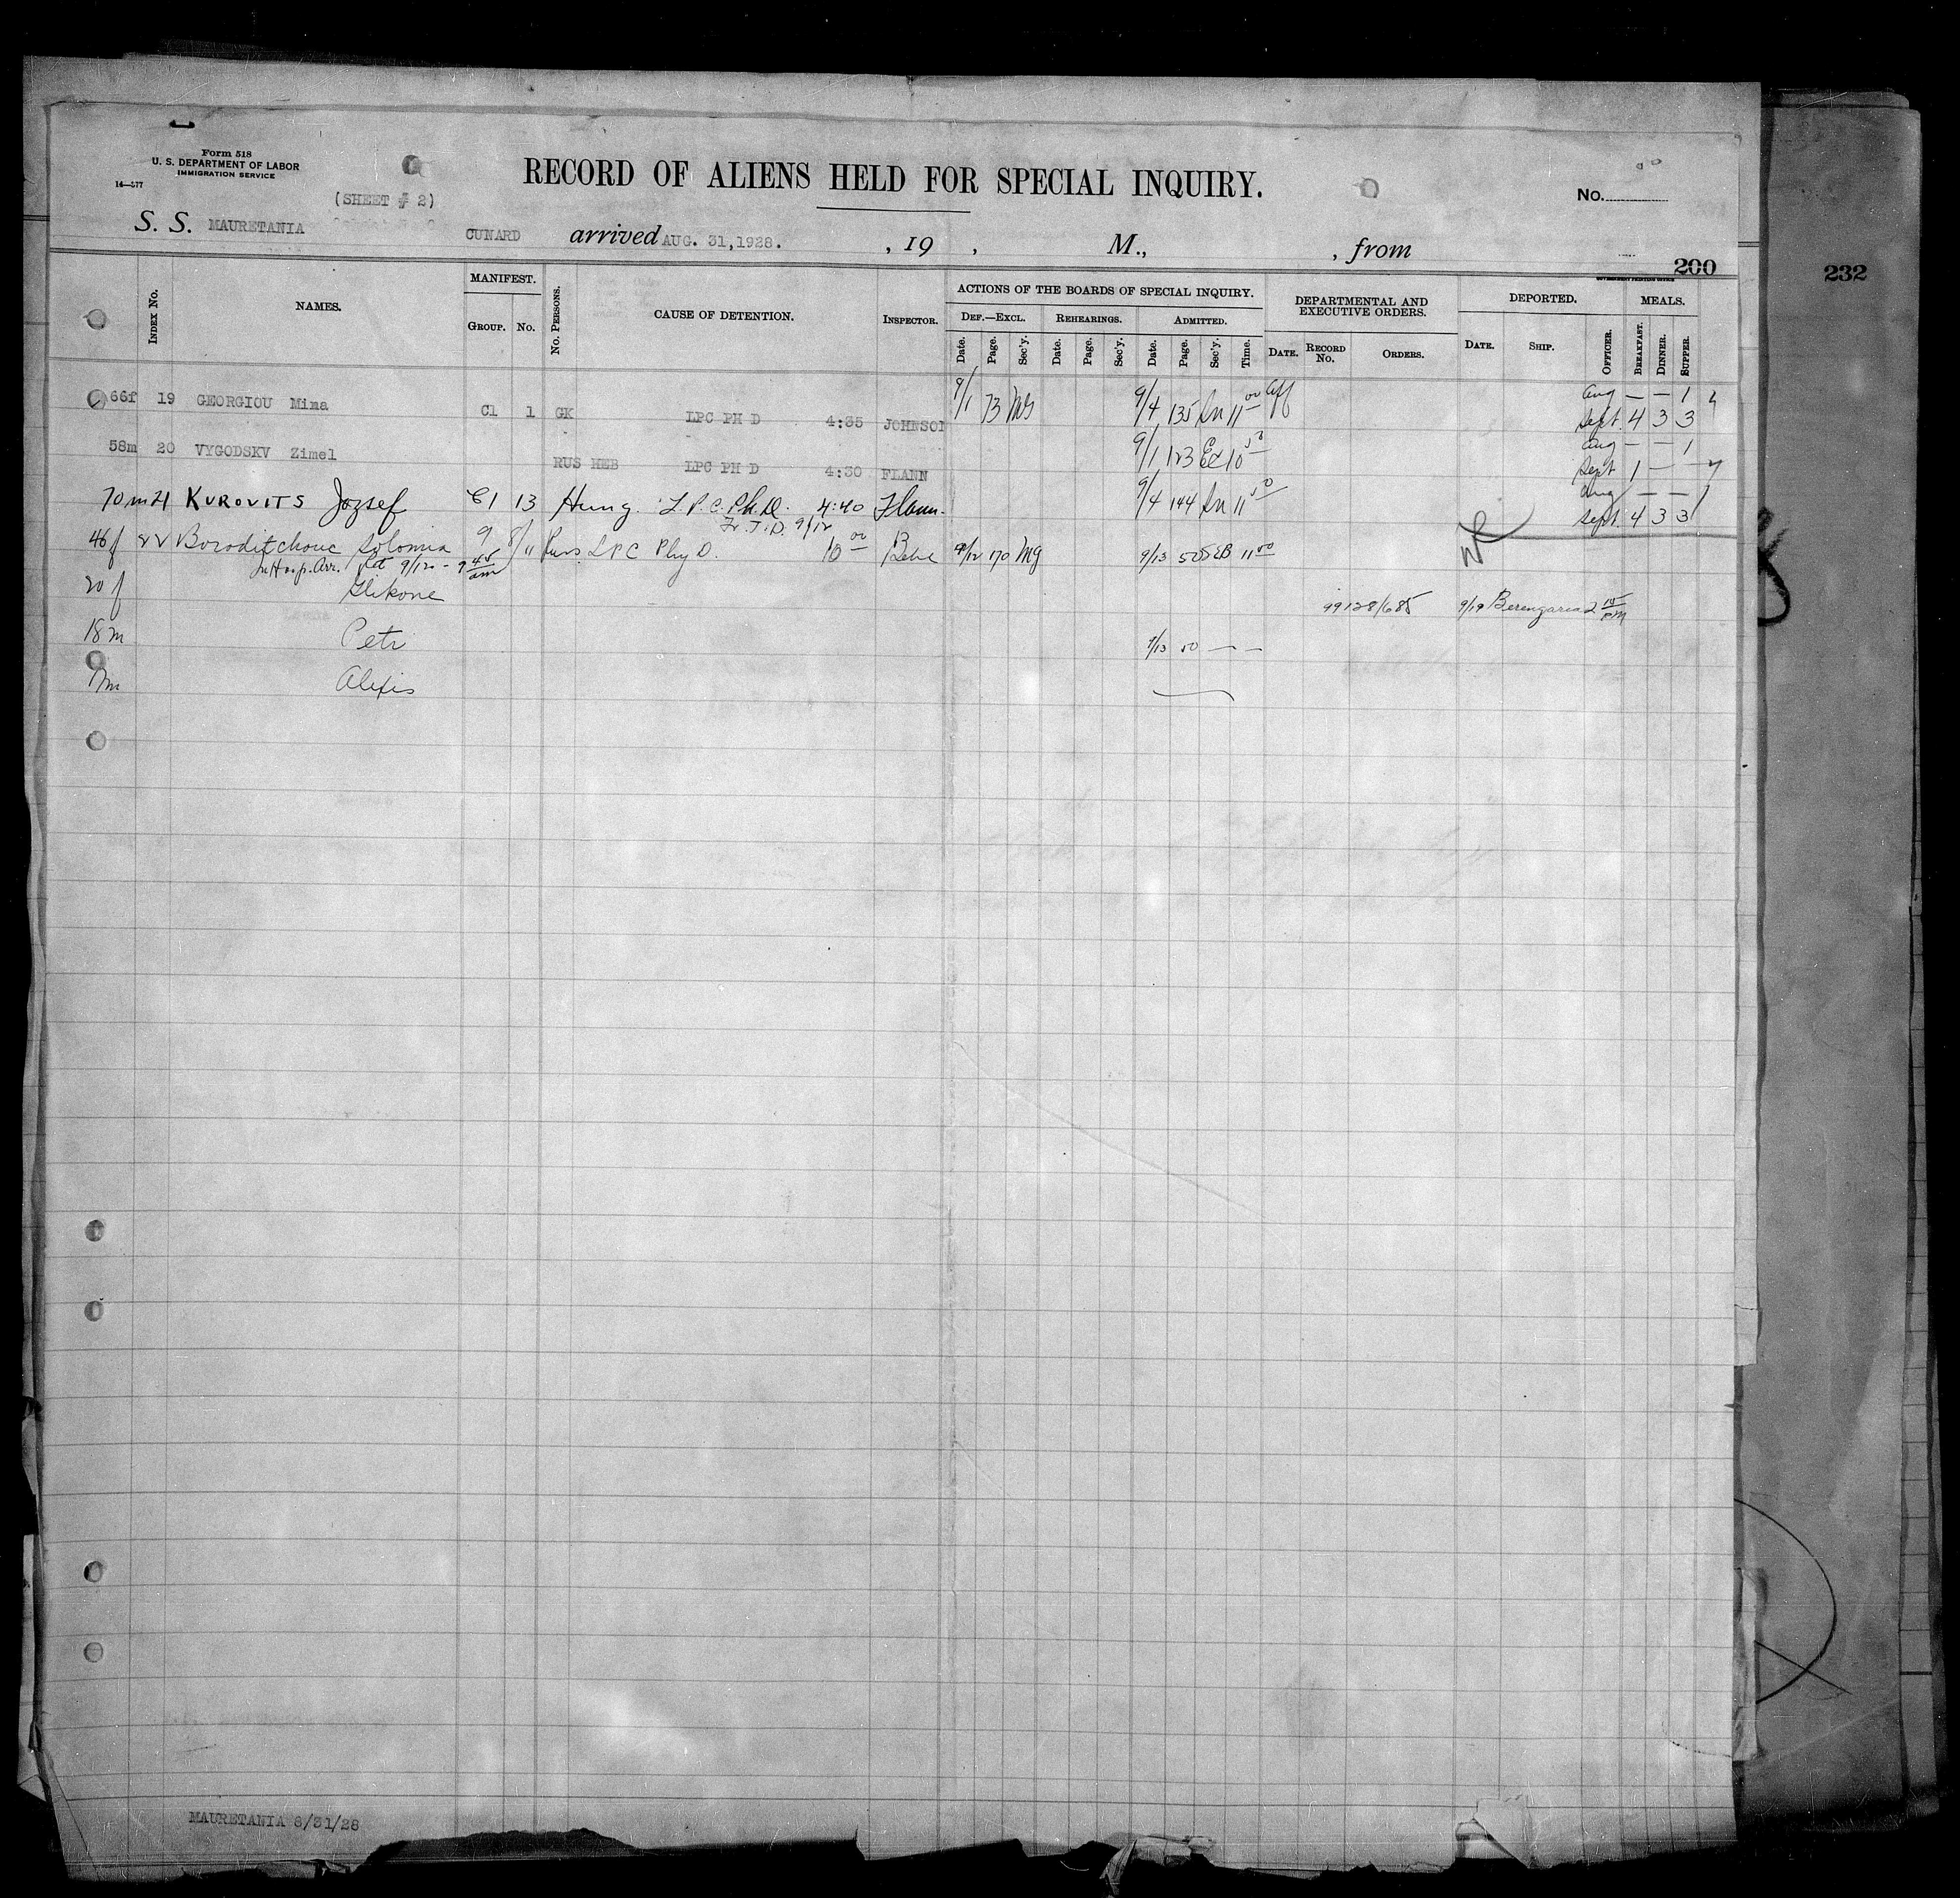 Form 518
U. S. DEPARTMENT OF LABOR
IMMIGRATION SERVICE
14—577
RECORD OF ALIENS HELD FOR SPECIAL INQUIRY.
No.
(SHEET # 2)
S. S. MAURETANIA CUNARD arrived AUG. 31, 1928. , 19 , M., , from
200
232
GOVERNMENT PRINTING OFFICE
INDEX NO. NAMES. MANIFEST. GROUP. NO. NO. PERSONS. CAUSE OF DETENTION. INSPECTOR. ACTIONS OF THE BOARDS OF SPECIAL INQUIRY. DEPARTMENTAL AND EXECUTIVE ORDERS. DEPORTED. MEALS.
DEF.—EXCL. REHEARINGS. ADMITTED.
Date. Page. Sec'y. Date. Page. Sec'y. Date. Page. Sec'y. Time. DATE. RECORD No. ORDERS. DATE. SHIP. OFFICER. BREAKFAST. DINNER. SUPPER.
66f 19 GEORGIOU Mima C1 1 GK LPC PH D 4:35 JOHNSON 9/1 73 MG 9/4 135 Sn 11 00 Aug — — 1
Sept 4 3 3
58m 20 VYGODSKV Zimel RUS HEB LPC PH D 4:30 FLANN 9/1 123 10 Aug — — 1
Sept 1 — —
70m 21 KUROVITS Jozsef C1 13 Hung. L.P.C. Ph.D. 4:40 Flann. 9/4 144 Sn 11 Aug — — 1
Sept 4 3 3
46f 22 Boroditchouc Solomia 9 8/11 Rus LPC Phy D. 10 00 9/12 170 MG 9/13 50 SEB 11 00
In Hosp. Arr. 9/12 - 9 45 am
20f Glikone 99128/685 9/19 Berengaria 2 15 PM
18m Petr 9/13 50 — —
7m Alexis
MAURETANIA 8/31/28